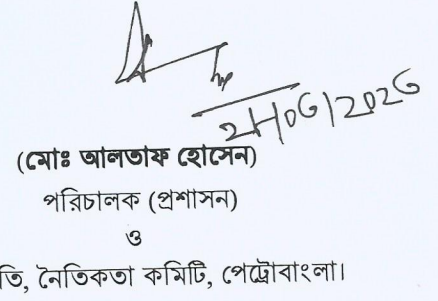 ২৮/০৬/২০২৬
(মোঃ আলতাফ হোসেন)
পরিচালক (প্রশাসন)
ও
তি, নৈতিকতা কমিটি, পেট্রোবাংলা।